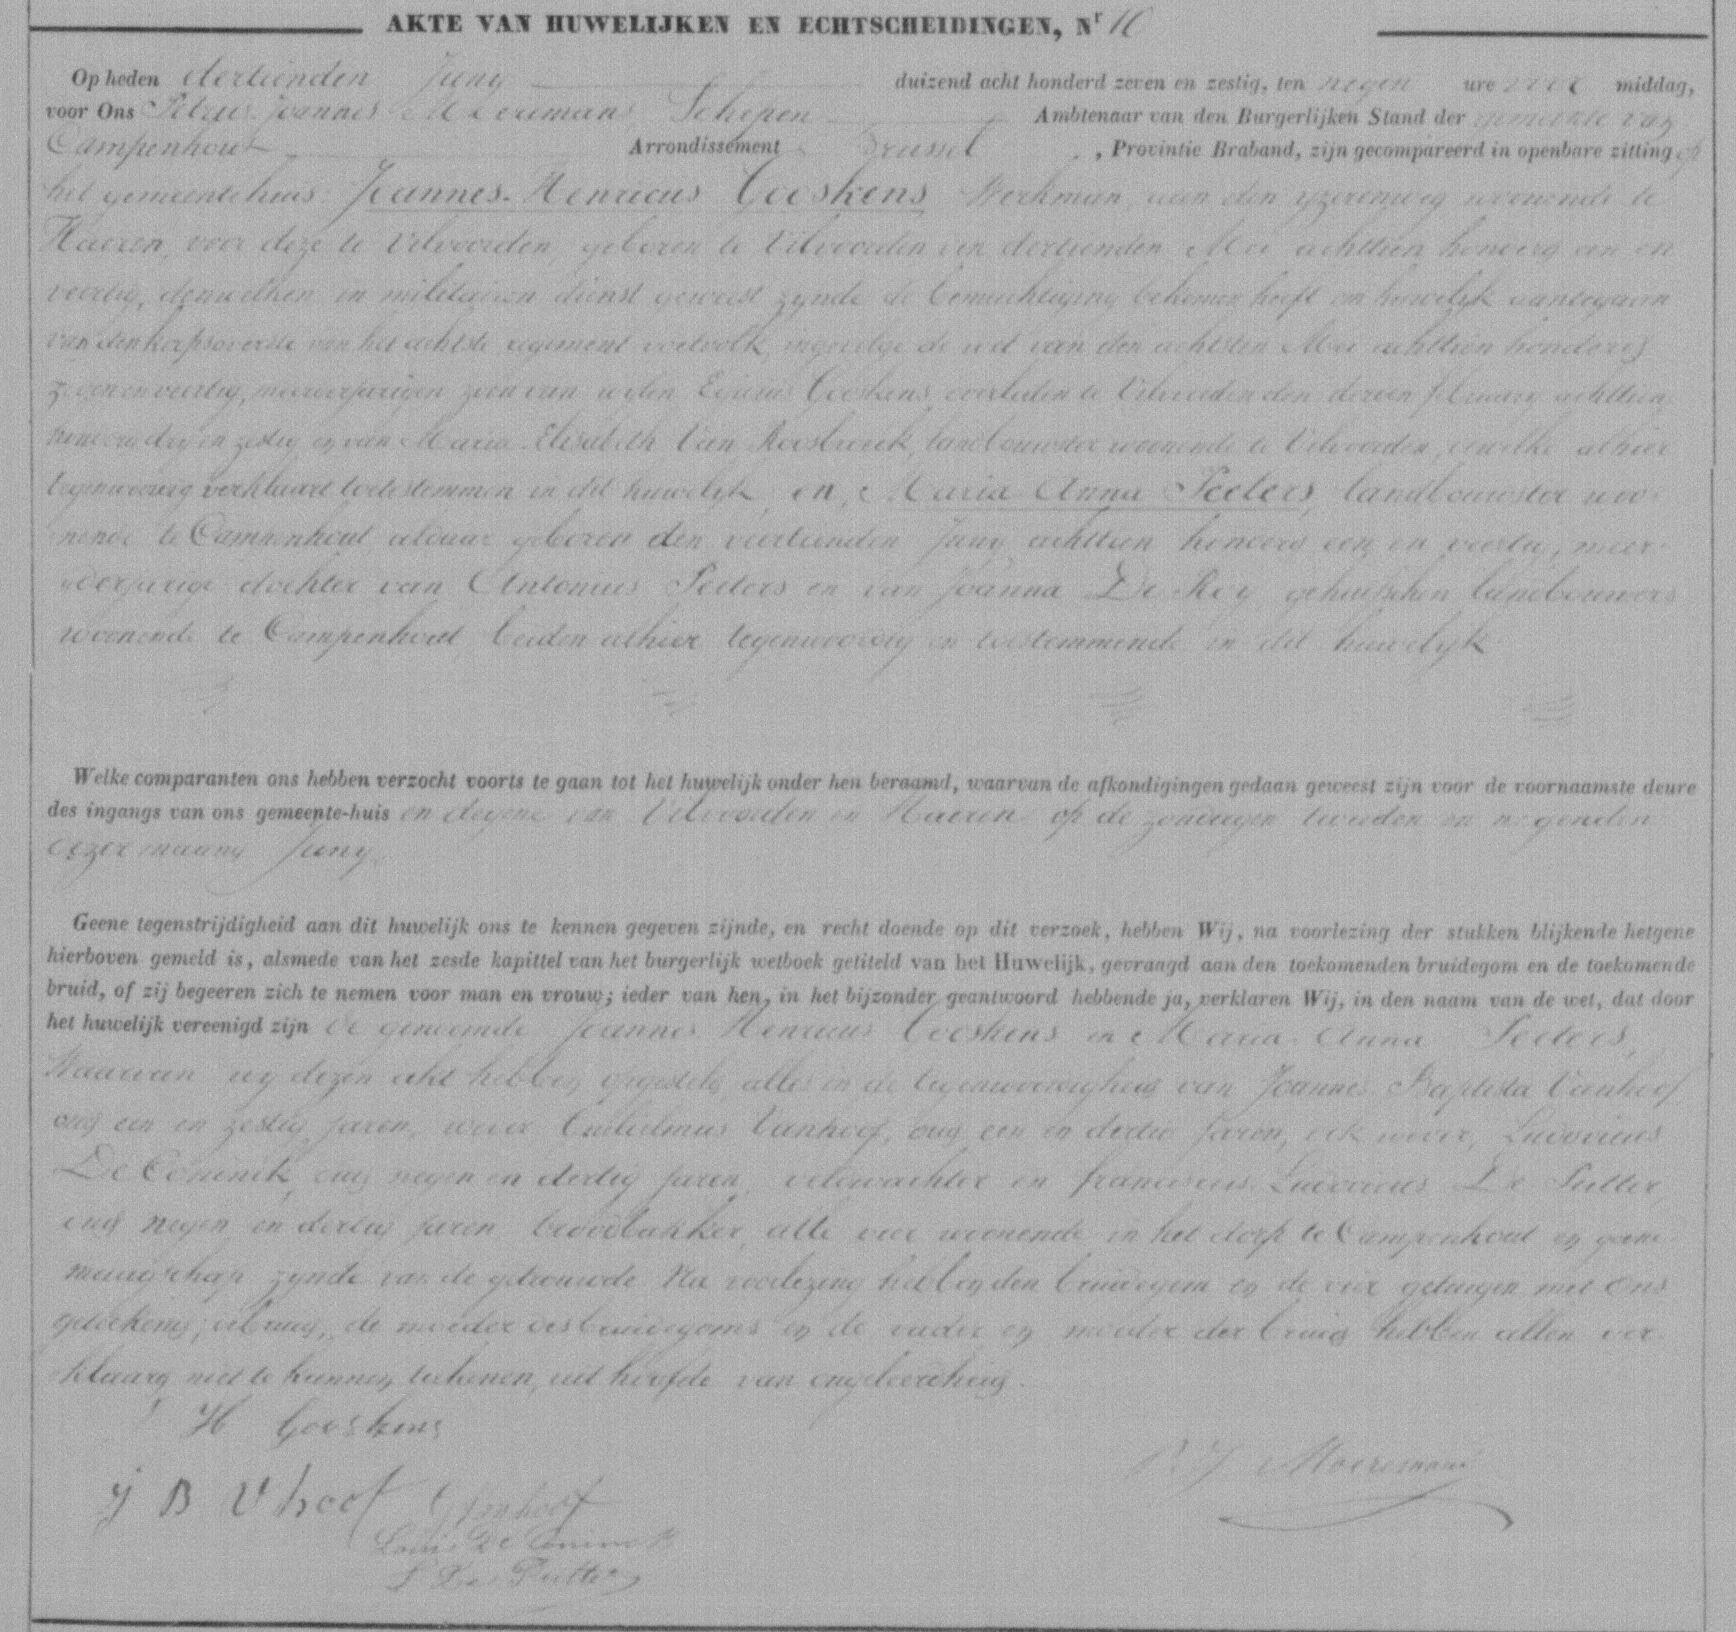 AKTE VAN HUWELIJKEN EN ECHTSCHEIDINGEN, Nr 16
Op heden dertienden Juny duizend acht honderd zeven en zestig, ten negen ure voor middag,
voor Ons Petrus Joannes Moeremans Schepen Ambtenaar van den Burgerlijken Stand der gemeente van
Campenhout Arrondissement Brussel, Provintie Braband, zijn gecompareerd in openbare zitting op
het gemeentehuis Joannes Henricus Gooskens Werkman aan den yzerenweg woonende te
Haeren, voor deze te Vilvoorden, geboren te Vilvoorden den dertienden Mei achttien honderd een en
veertig, denwelken in militairen dienst geweest zynde de bemachtiging bekomen heeft om huwelyk aantegaan
van den korpsoverste van het achtste regiment voetvolk, ingevolge de wet van den achtsten Mei achttien honderd
zeven en veertig, meerderjarigen zoon van wylen Gooskens, overleden te Vilvoorden den february achttien
honderd dry en zestig en van Maria Elisabeth Van Roosbroeck, landbouwster woonende te Vilvoorden, dewelke alhier
tegenwoordig verklaart toetestemmen in dit huwelyk, en, Maria Anna Peeters, landbouwster woo-
nende te Campenhout aldaar geboren den veertienden Juny achttien honderd een en veertig, meer-
derjarige dochter van Antonius Peeters en van Joanna De Rey, gehuwden landbouwers
woonende te Campenhout, beiden alhier tegenwoordig en toestemmende in dit huwelyk
Welke comparanten ons hebben verzocht voorts te gaan tot het huwelijk onder hen beraamd, waarvan de afkondigingen gedaan geweest zijn voor de voornaamste deure
des ingangs van ons gemeente-huis en degene van Vilvoorden en Haeren op de zondagen tweeden en negenden
dezer maand Juny.
Geene tegenstrijdigheid aan dit huwelijk ons te kennen gegeven zijnde, en recht doende op dit verzoek, hebben Wij, na voorlezing der stukken blijkende hetgene
hierboven gemeld is, alsmede van het zesde kapittel van het burgerlijk wetboek getiteld van het Huwelijk, gevraagd aan den toekomenden bruidegom en de toekomende
bruid, of zij begeeren zich te nemen voor man en vrouw; ieder van hen, in het bijzonder geantwoord hebbende ja, verklaren Wij, in den naam van de wet, dat door
het huwelijk vereenigd zijn de genoemde Joannes Henricus Gooskens en Maria Anna Peeters,
Waarvan wy dezen akt hebben opgesteld alles in de tegenwoordigheid van Joannes Baptista Vanhoof
oud een en zestig jaren, wever Guilielmus Vanhoof, oud een en dertig jaren, ook wever, Ludovicus
De Coninck, oud negen en dertig jaren, veldwachter en franciscus Ludovicus De Putter,
oud negen en dertig jaren broodbakker, alle vier woonende in het dorp te Campenhout en geene
maagschap zynde van de getrouwde. Na voorlezing hebben den bruidegom en de vier getuigen met Ons
geteekend; de bruid, de moeder des bruidegoms en de vader en moeder der bruid hebben allen ver-
klaard niet te kunnen teekenen, uit hoofde van ongeleerdheid.
H Gooskens
J B Vhoof G Vanhoof P. J. Moeremans
Louis De Coninck
L De Putter